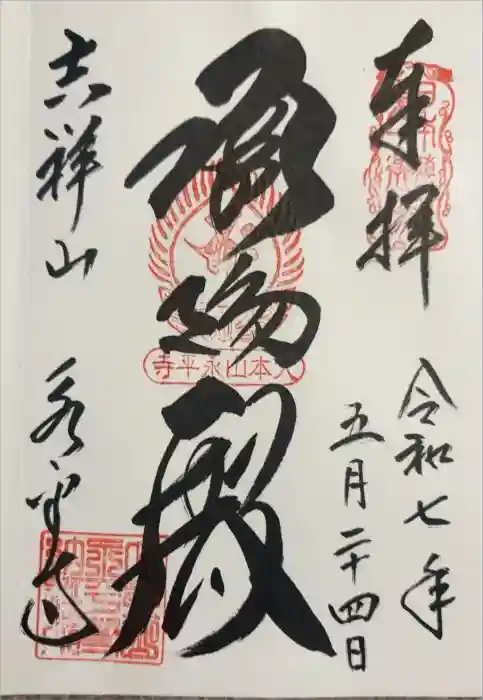 奉拝
令和七年
五月二十四日
承陽殿
大本山永平寺
吉祥山
永平寺